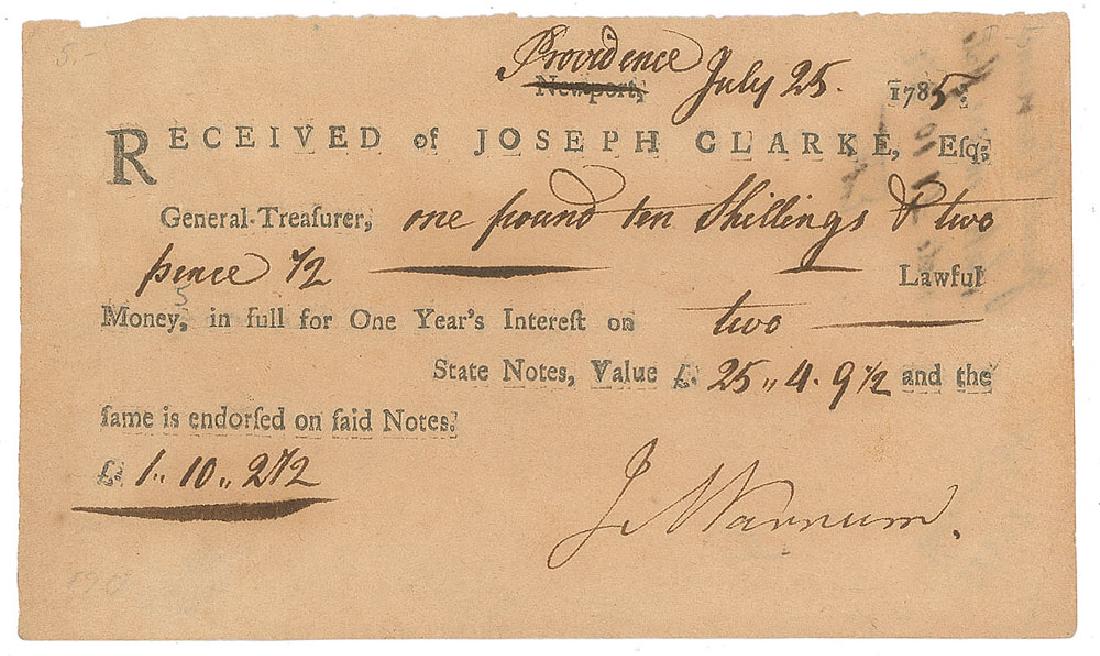 5.-
Providence July 25. 1785.
Newport,
RECEIVED of JOSEPH CLARKE, Eſq;
General-Treaſurer, one pound ten Shillings & two
pence 1/2 Lawful
Money, in full for One Year's Intereſt on two
State Notes, Value £. 25,, 4. 9 1/2 and the
ſame is endorſed on ſaid Notes.
£. 1.. 10,, 2 1/2
J Varnum.